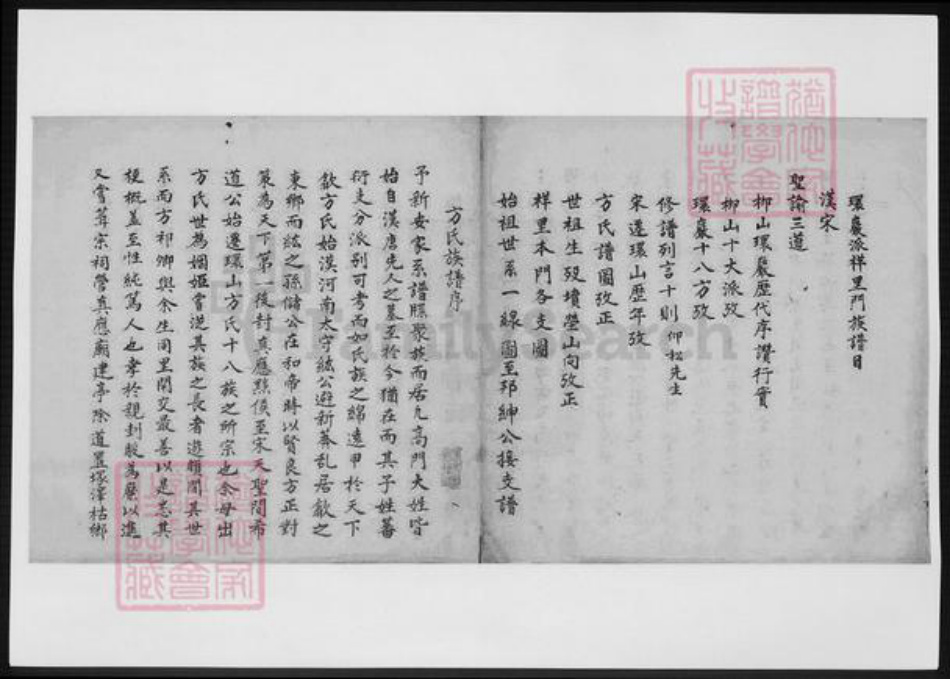 環巖派様里門族譜目
漢宋
聖諭三道
柳山環巖歷代序讚行實
柳山十大派攷
環巖十八方攷
修譜列言十則 仰松先生
宋遷環山歷年攷
方氏譜圖攷正
世祖生殁墳塋山向攷正
様里本門各支圖
始祖世系一線圖至邦紳公接支譜
方氏族譜序
予新安家系譜縣聚族而居凡高門大姓皆
始自漢唐先人之墓至於今猶在而其子姓蕃
衍支分派别可考而如氏族之綿遠甲於天下
歙方氏始漢河南太守紘公避新莽乱居歙之
東鄉而紘之孫儲公在和帝時以賢良方正對
策為天下第一後封真應黟侯至宋天聖間希
道公始遷環山方氏十八族之所宗也余母出
方氏世為婣婭嘗從其族之長者遊頗聞其世
系而方祁卿與余生同里閈交最善以是悉其
梗概盖至性純篤人也孝於親刲股為糜以進
又嘗葺宗祠營真應廟建亭除道置塚澤枯鄉
譜學會
收藏
FamilySearch